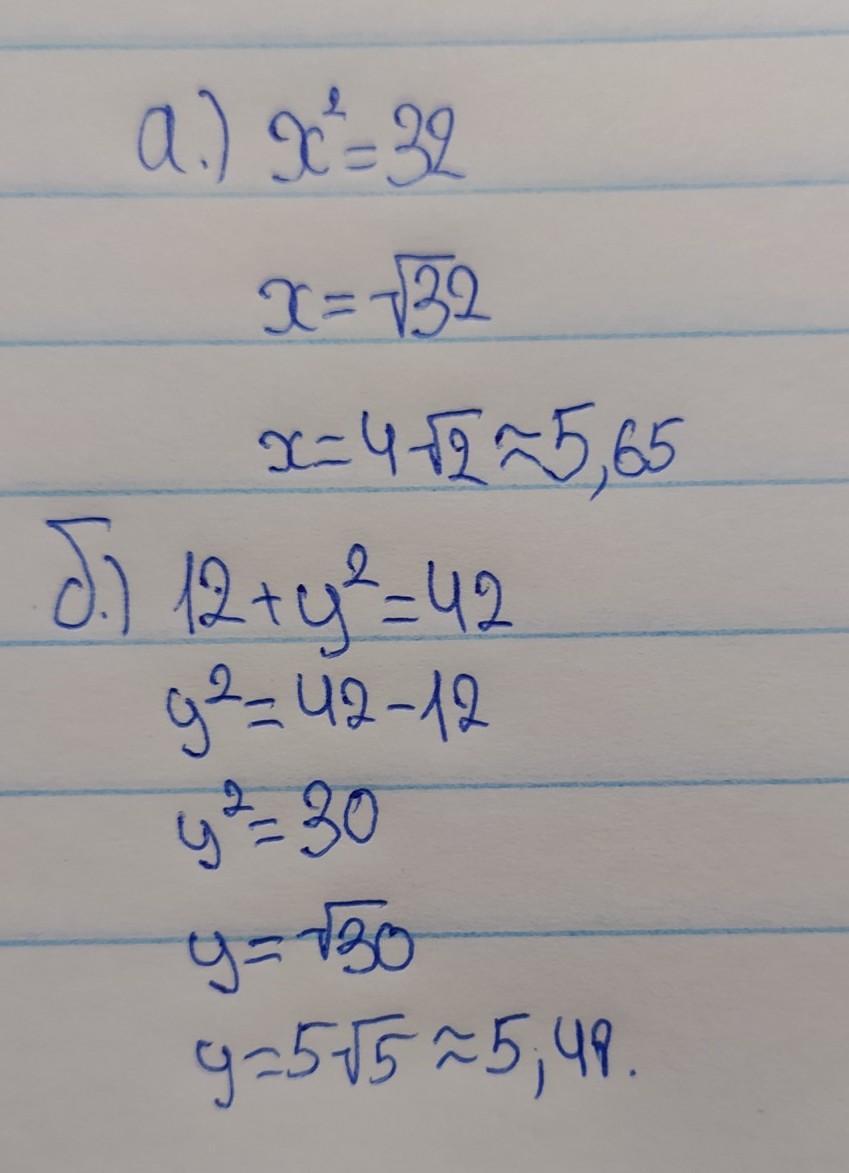 а.) x² = 32
x = √32
x = 4√2 ≈ 5,65
б.) 12 + y² = 42
y² = 42 - 12
y² = 30
y = √30
y = 5√5 ≈ 5,48.